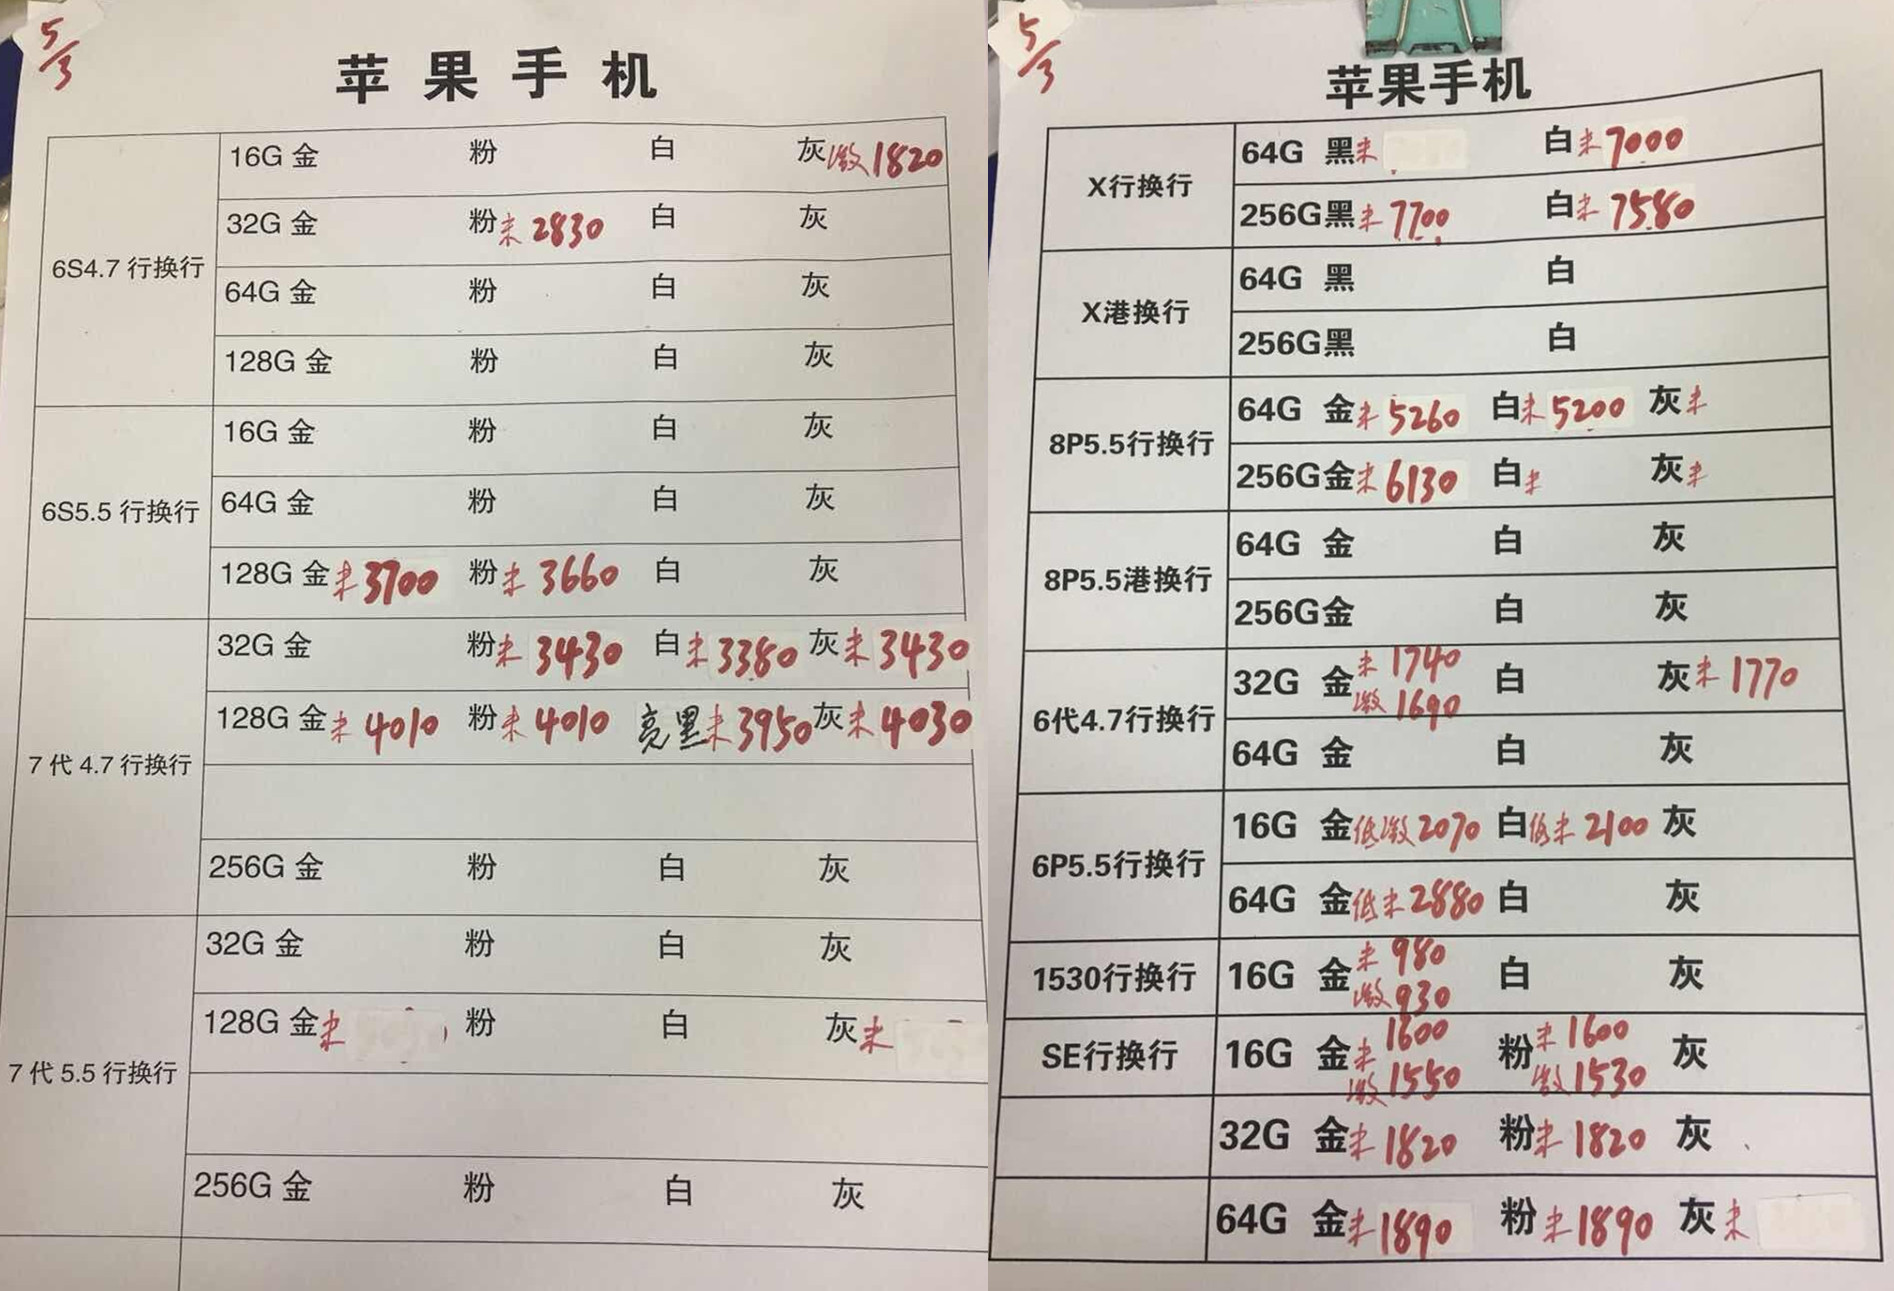 5/3
苹果手机
6S4.7行换行
16G 金 粉 白 灰激1820
32G 金 粉未2830 白 灰
64G 金 粉 白 灰
128G 金 粉 白 灰
6S5.5行换行
16G 金 粉 白 灰
64G 金 粉 白 灰
128G 金未3700 粉未3660 白 灰
7代4.7行换行
32G 金 粉未3430 白未3380 灰未3430
128G 金未4010 粉未4010 亮黑未3950 灰未4030
256G 金 粉 白 灰
7代5.5行换行
32G 金 粉 白 灰
128G 金未 粉 白 灰未
256G 金 粉 白 灰
5/3
苹果手机
X行换行
64G 黑未 白未7000
256G黑未7700 白未7580
X港换行
64G 黑 白
256G黑 白
8P5.5行换行
64G 金未5260 白未5200 灰未
256G金未6130 白未 灰未
8P5.5港换行
64G 金 白 灰
256G金 白 灰
6代4.7行换行
32G 金未1740 激1690 白 灰未1770
64G 金 白 灰
6P5.5行换行
16G 金低激2070 白低未2100 灰
64G 金低未2880 白 灰
1530行换行
16G 金未980 激930 白 灰
SE行换行
16G 金未1600 激1550 粉未1600 激1530 灰
32G 金未1820 粉未1820 灰
64G 金未1890 粉未1890 灰未